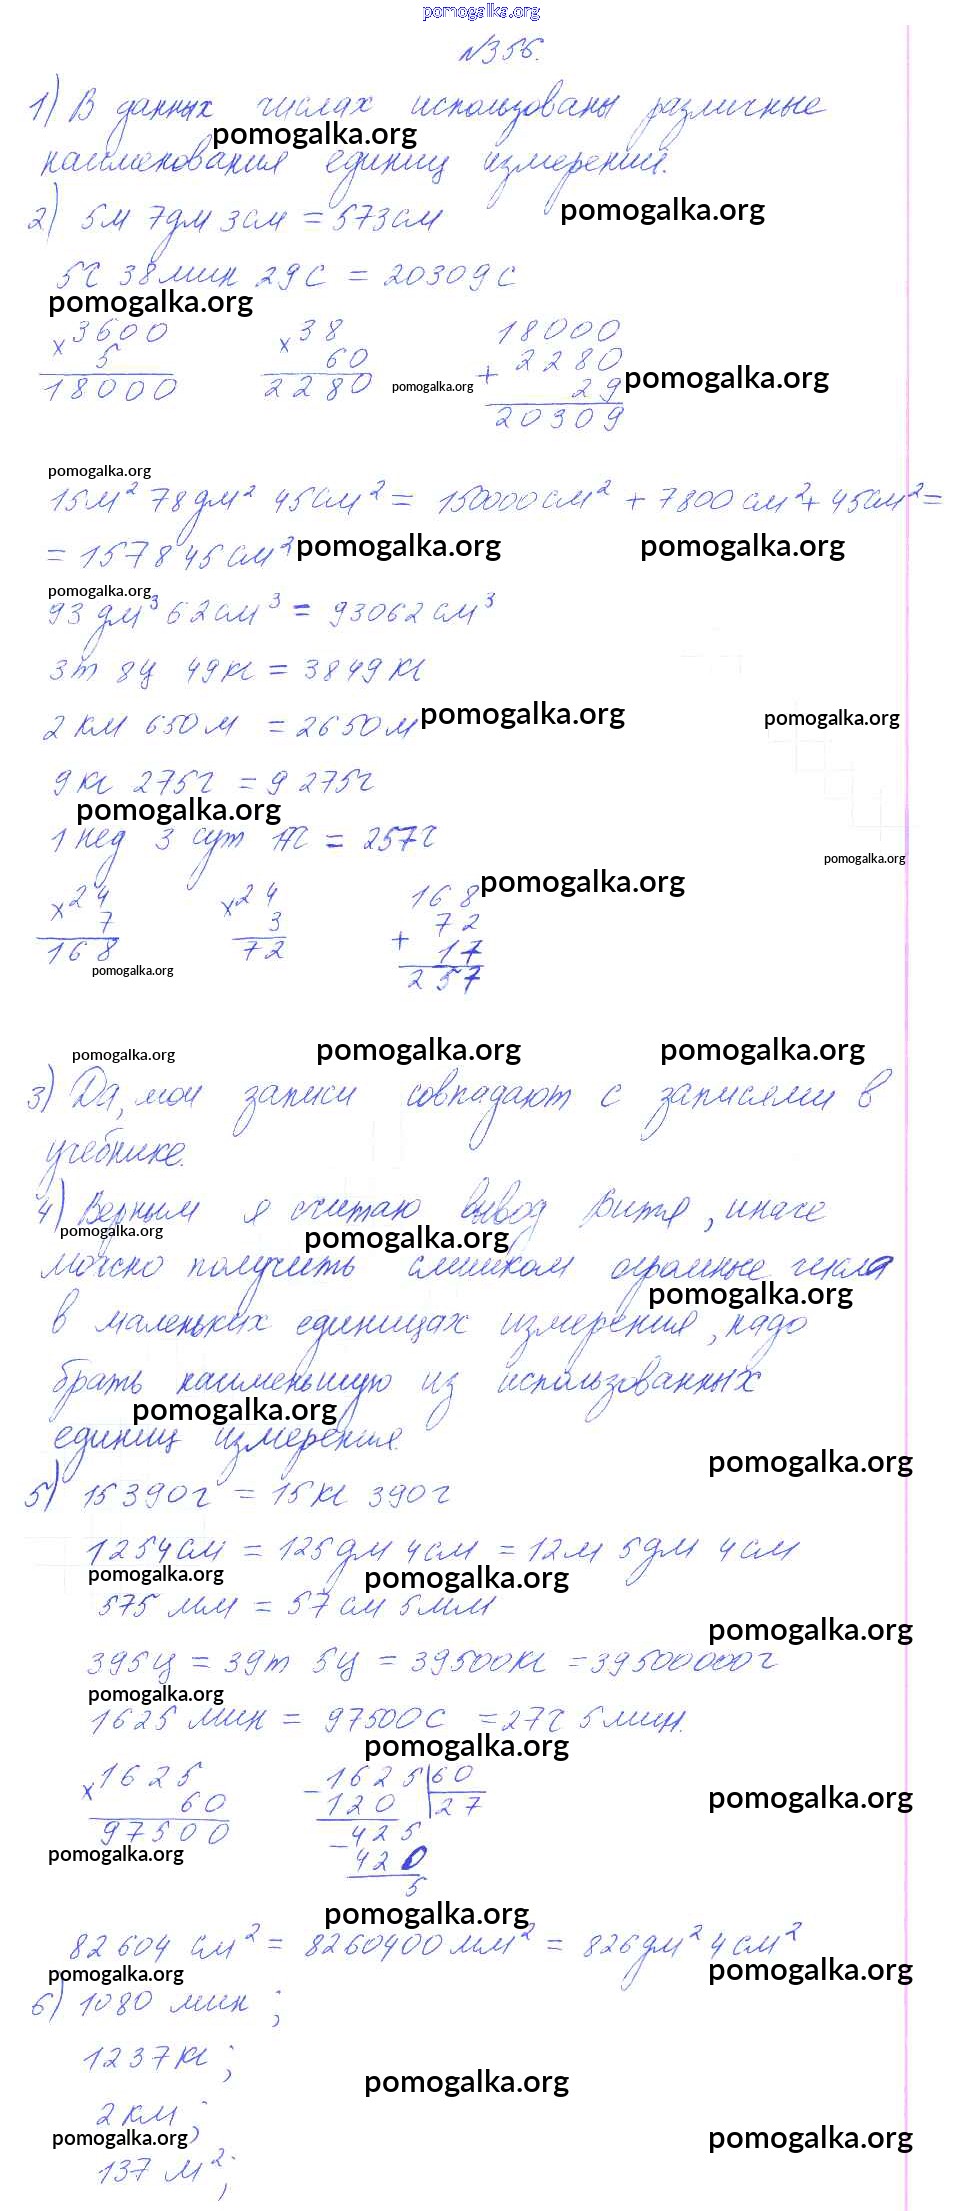 pomogalka.org
№356.
1) В данных числах использованы различные
pomogalka.org
наименования единиц измерений.
pomogalka.org
2) 5м 7дм 3см = 573см
5ч 38мин 29с = 20309с
pomogalka.org
× 3600 × 38 18000
5 60 + 2280
pomogalka.org
18000 2280 29
pomogalka.org
20309
pomogalka.org
15м² 78дм² 45см² = 150000см² + 7800см² + 45см² =
= 157845см²
pomogalka.org pomogalka.org
pomogalka.org
93дм³ 62см³ = 93062см³
3т 8ц 49кг = 3849кг
2км 650м = 2650м
pomogalka.org pomogalka.org
9кг 275г = 9275г
pomogalka.org
1 нед 3 сут 17ч = 257ч
pomogalka.org
× 24 × 24 168
pomogalka.org
7 3 72
168 72 + 17
pomogalka.org
257
pomogalka.org pomogalka.org pomogalka.org
3) Да, мои записи совпадают с записями в
учебнике.
4) Верным я считаю вывод Вити, иначе
pomogalka.org pomogalka.org
можно получить слишком огромные числа
pomogalka.org
в маленьких единицах измерения, надо
брать наименьшую из использованных
pomogalka.org
единиц измерения.
pomogalka.org
5) 15390г = 15кг 390г
1254см = 125дм 4см = 12м 5дм 4см
pomogalka.org pomogalka.org
575 мм = 57см 5мм
pomogalka.org
395ц = 39т 5ц = 39500кг = 39500000г
pomogalka.org
1625 мин = 97500с = 27ч 5мин.
pomogalka.org
× 1625 - 1625 | 60
60 120 27
pomogalka.org
97500 - 425
pomogalka.org
420
5
pomogalka.org
82604 см² = 8260400мм² = 826дм² 4см²
pomogalka.org pomogalka.org
6) 1080 мин ;
1237кг ;
pomogalka.org
2км ;
pomogalka.org pomogalka.org
137 м² ;